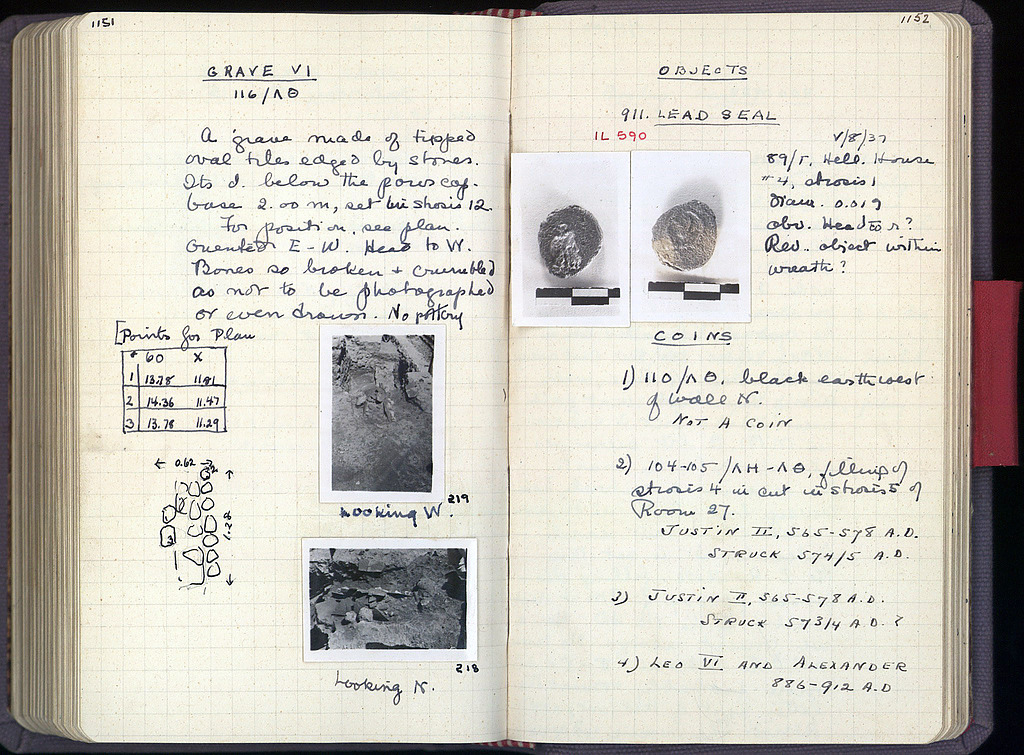 1151
GRAVE VI
116/ΛΘ
A grave made of tipped
oval tiles edged by stones.
Its d. below the poros cap.
base 2.00 m, set in strosis 12.
For position, see plan.
Oriented E-W. Head to W.
Bones so broken + crumbled
as not to be photographed
or even drawn. No pottery
[Points for Plan
# 60 X
1 13.78 11.81
2 14.36 11.47
3 13.78 11.29
0.62
1.28
219
Looking W.
218
Looking N.
1152
OBJECTS
911. LEAD SEAL
IL 590
V/8/37
89/Γ, Hell. House
#4, strosis 1
Diam. 0.019
obv. Head to r?
Rev. object within
wreath?
COINS
1) 110/ΛΘ, black earth west
of wall N.
NOT A COIN
2) 104-105/ΛH-ΛΘ, filling of
strosis 4 in cut in strosis 5 of
Room 27.
JUSTIN II, 565-578 A.D.
STRUCK 574/5 A.D.
3) JUSTIN II, 565-578 A.D.
STRUCK 573/4 A.D.?
4) LEO VI AND ALEXANDER
886-912 A.D